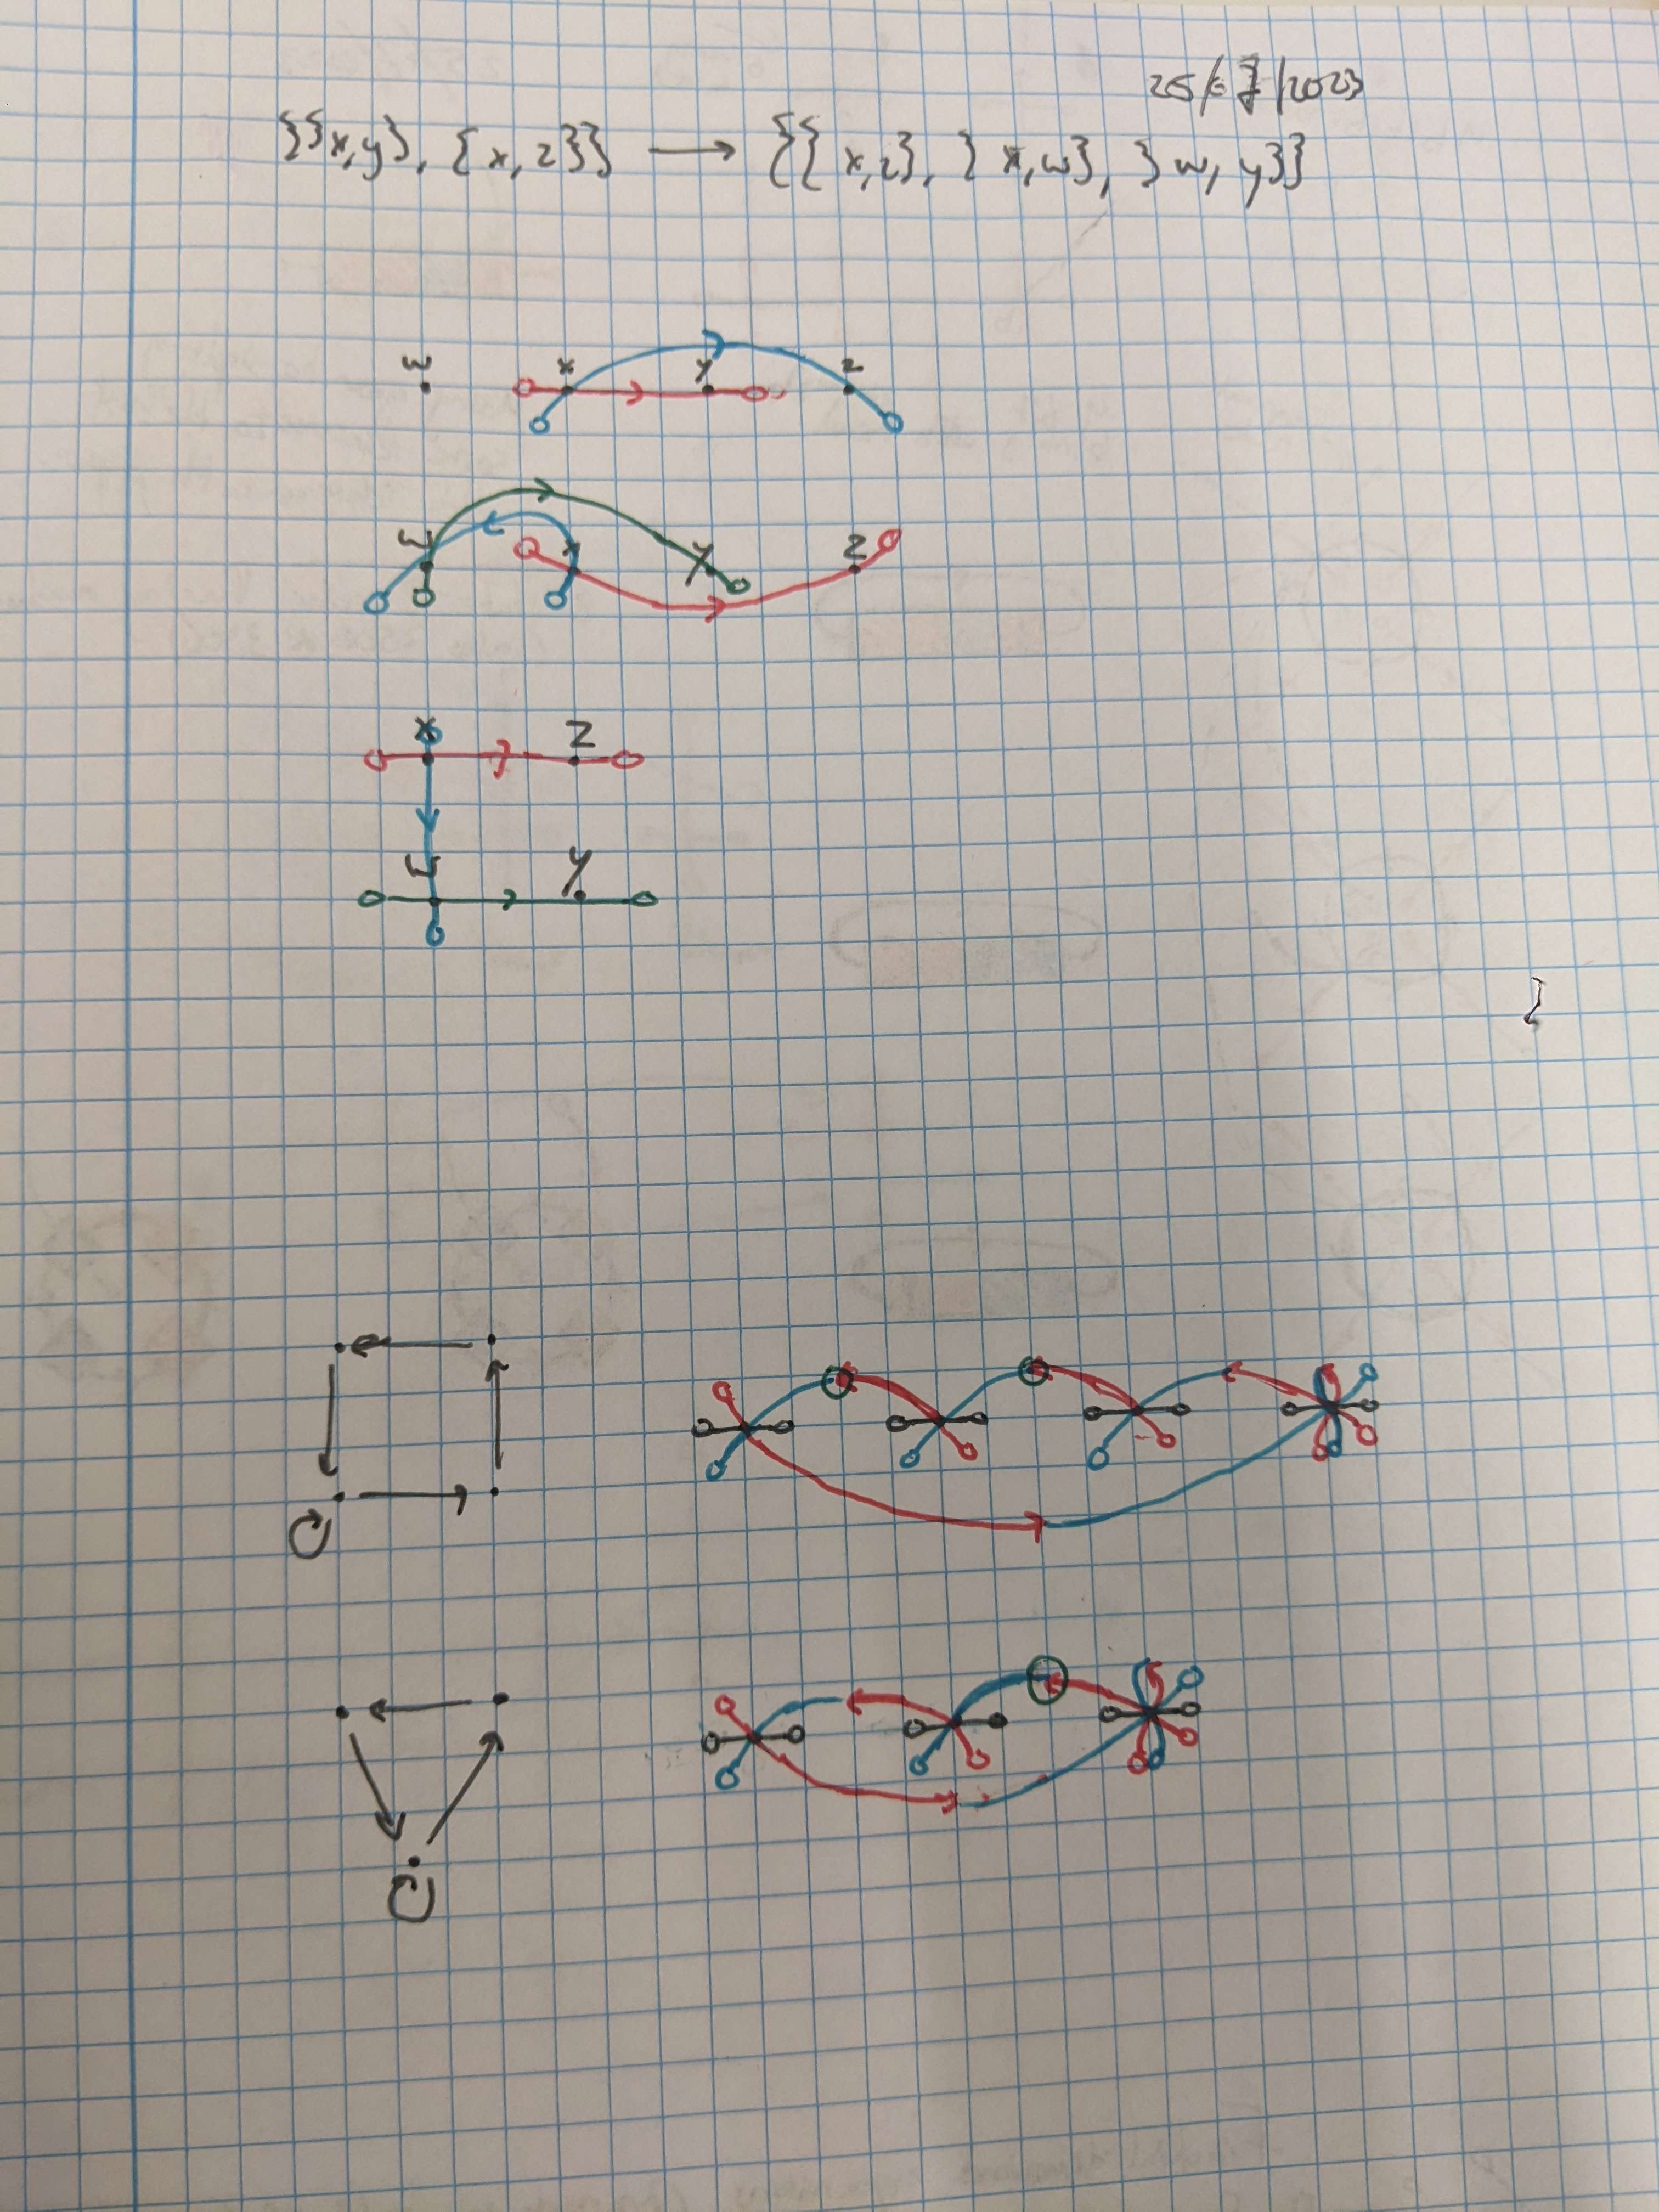 25/07/2023
{{x,y}, {x,z}} → {{x,z}, {x,w}, {w,y}}
w x y z
w x y z
x z
w y
}